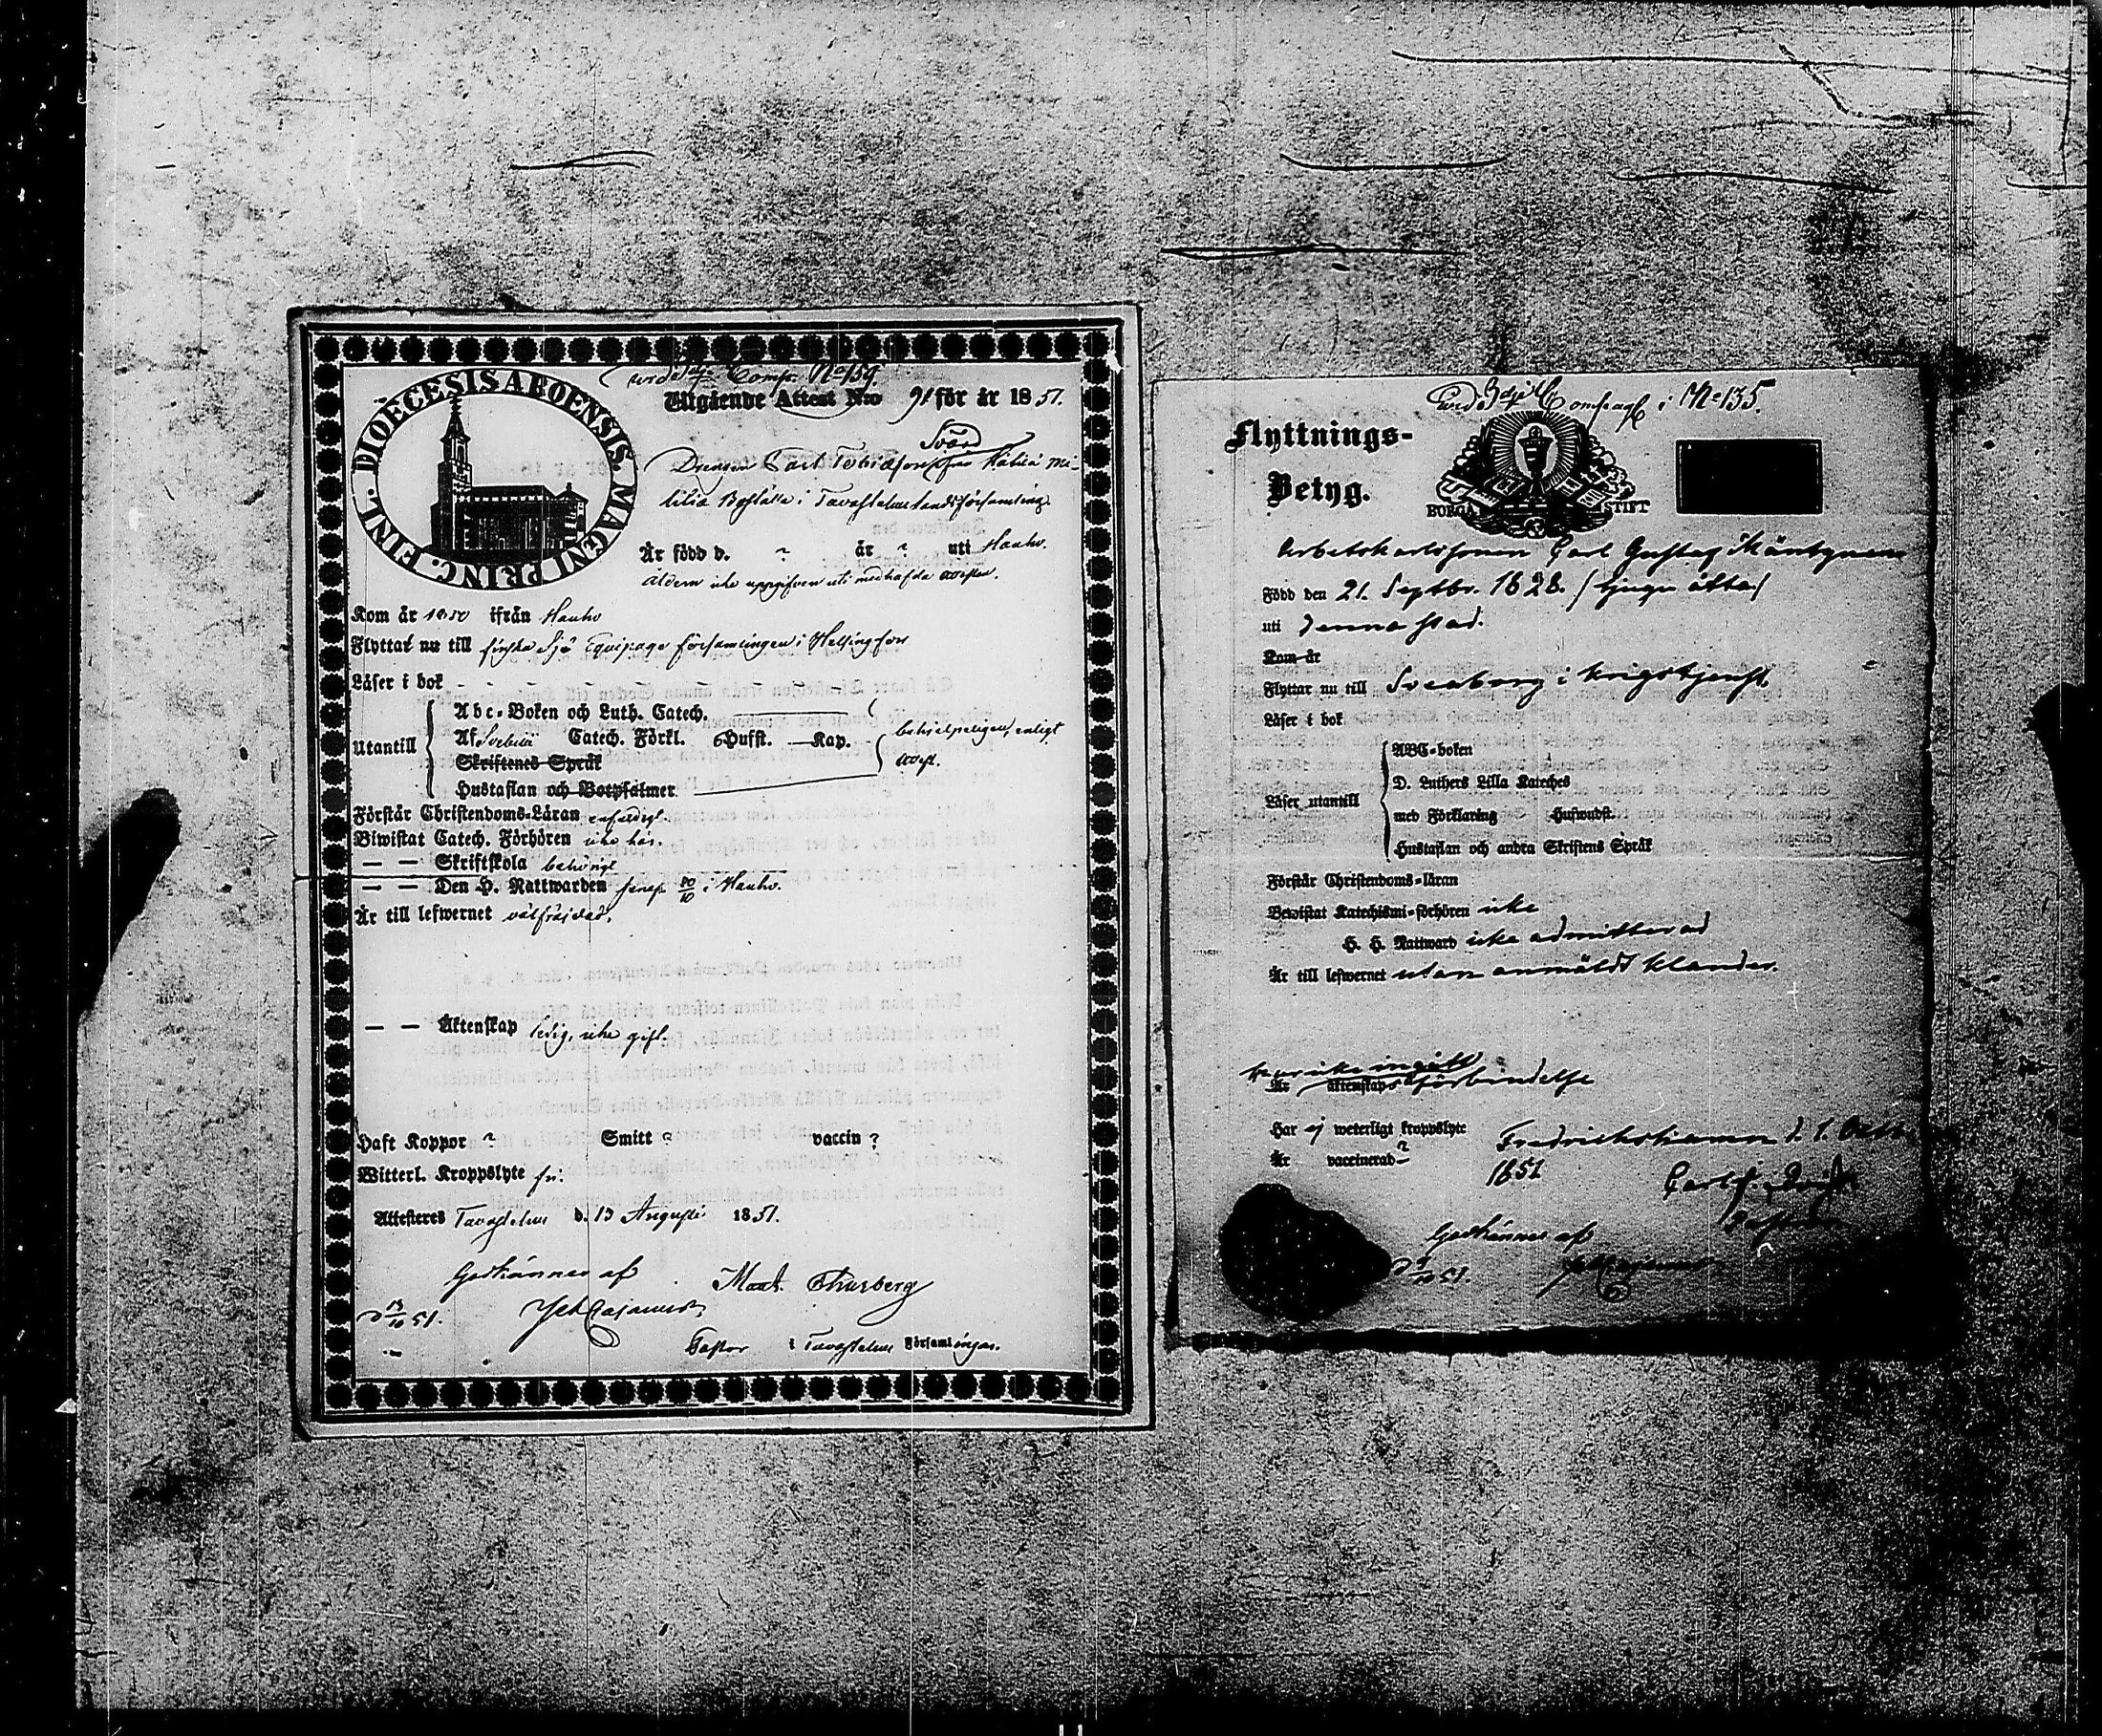 DIOECESIS ABOENSIS. MAGNI PRINC. FINL.
Comp. No 139.
Utgående Attest N:o 91 för år 1851.
Svärd
Drengen Carl Tobiasson från Kätilä Mi-
litia Boställe i Tavastehus landsförsamling.
Är född d. ? år ? uti Hauho.
åldern icke uppgifven uti medhafda attesten.
Kom år 1850 ifrån Hauho
Flyttat nu till finska Sjö Equipage församlingen i Helsingfors
Läser i bok
Utantill
Abc-Boken och Luth. Catech.
Af Svebelii Catech. Förkl. 6 Hufst. — Kap.
behjelpeligen, enligt
attest.
Skriftenes Språk
Hustaflan och Botpsalmer
Förstår Christendoms-Läran enfaldigt.
Biwistat Catech. Förhören icke här.
— — Skriftskola behörigt
— — Den H. Nattwarden senast 20/10 i Hauho.
Är till lefwernet välfräjdad.
— — Äktenskap ledig, icke gift.
Haft Koppor ? Smitt ? vaccin ?
Witterl. Kroppslyte fri:
Attesteres Tavastehus d. 13 Augusti 1851.
Godkännes af
d 13/10 51.
Joh Cajanus
Thurberg
Pastor i Tavastehus Församlingar.
i No 135.
Flyttnings-
Betyg.
BORGÅ STIFT
Arbetskarlssonen Carl Gustaf Mäntynen
Född den 21. Septbr. 1828. / tjugu åtta /
uti denna stad.
Kom år
Flyttar nu till Sveaborg i krigstjenst.
Läser i bok
Läser utantill
ABC-boken
D. Luthers Lilla Kateches
med Förklaring Hufwudst.
Hustaflan och andra Skriftens Språk
Förstår Christendoms-läran
Bewistat Katechismi-förhören icke
H. H. Nattward icke admitterad
Är till lefwernet utan anmäldt klander.
har icke ingått
Är äktenskaps förbindelse
Har ej weterligt kroppslyte
Är vaccinerad ?
Fredrichshamn d. 1. Octb
1851
Godkännes af